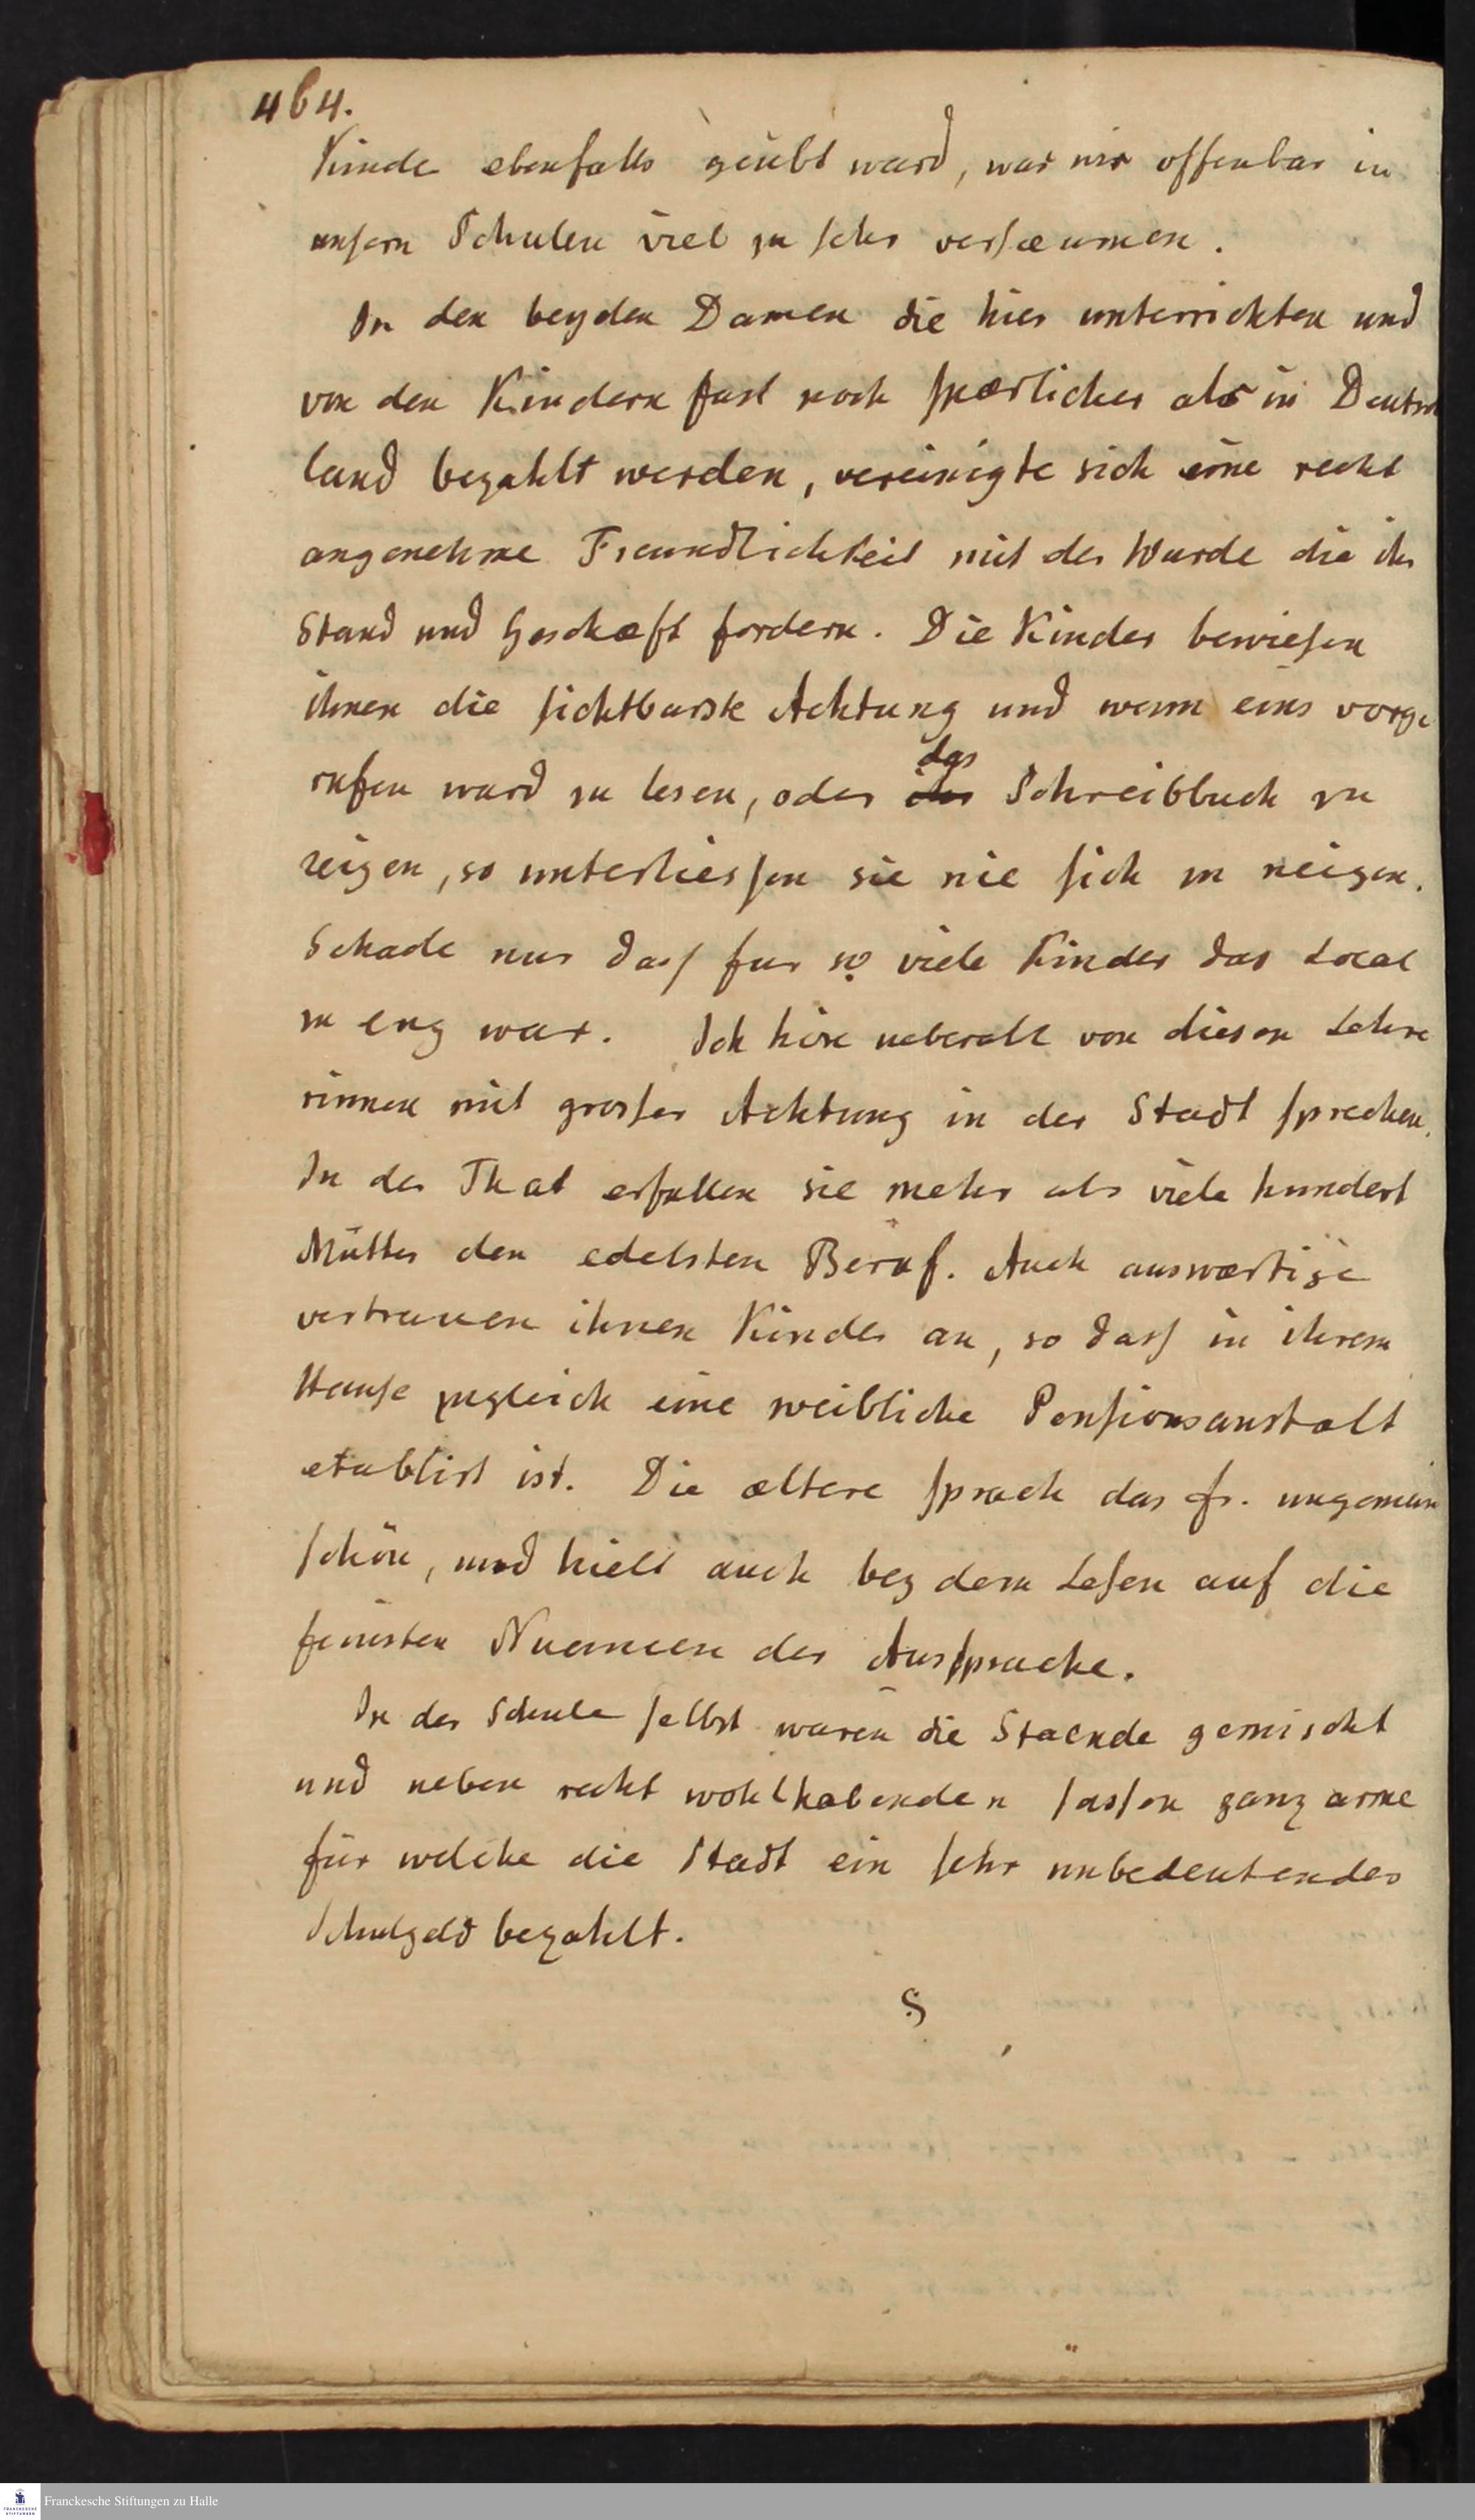 464.
Kinde ebenfalls geübt ward, was wir offenbar in
unsern Schulen viel zu sehr versæumen.
In den beyden Damen die hier unterrichten und
von den Kindern fast noch spærlicher als in Deutsch
land bezahlt werden, vereinigte sich eine recht
angenehme Freundlichkeit mit der Wurde die ihr
Stand und Geschæft fordern. Die Kinder bewiesen
ihnen die sichtbarste Achtung und wenn eins vorge
rufen ward zu lesen, oder das Schreibbuch zu
zeigen, so unterliessen sie nie sich zu neigen.
Schade nur dass fur so viele Kinder das Local
zu eng war. Ich höre ueberall von diesen Lehre
rinnen mit grosser Achtung in der Stadt sprechen.
In der That erfullen sie mehr als viele hundert
Mütter den edelsten Beruf. Auch auswærtige
vertrauen ihnen Kinder an, so dass in ihrem
Hause zugleich eine weibliche Pensionsanstalt
etablirt ist. Die æltere sprach das fr. ungemein
schön, und hielt auch bey dem Lesen auf die
feinsten Nuancen der Aussprache.
In der Schule selbst waren die Staende gemischt
und neben recht wohlhabenden sassen ganz arme
für welche die Stadt ein sehr unbedeutendes
Schulgeld bezahlt.
§
Franckesche Stiftungen zu Halle